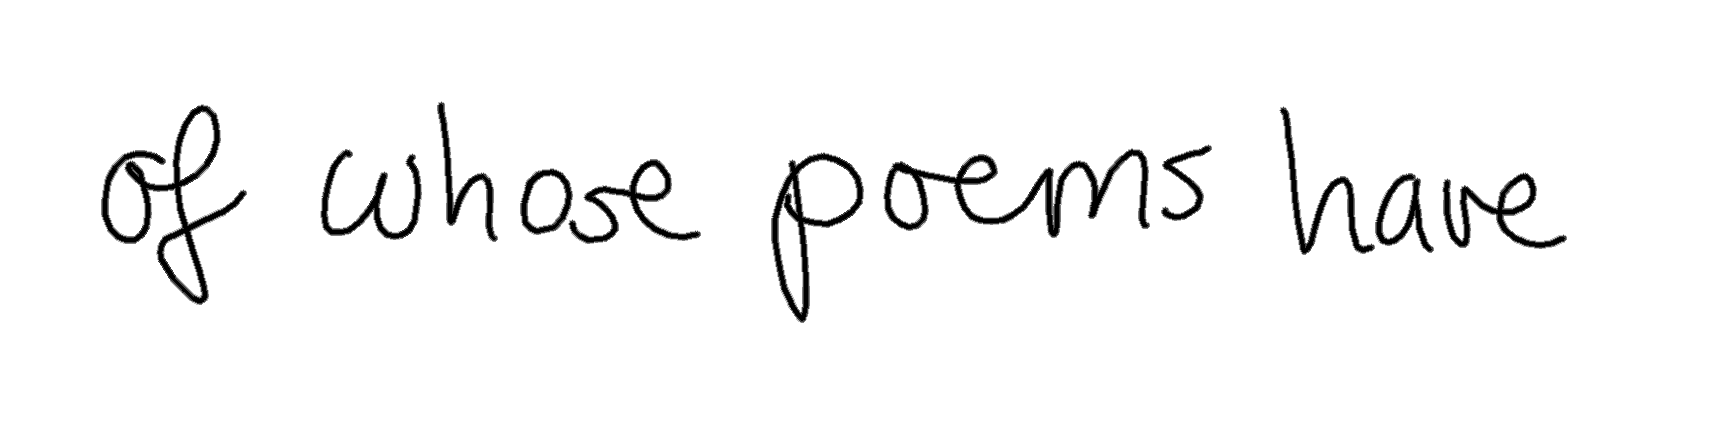 of whose poems have